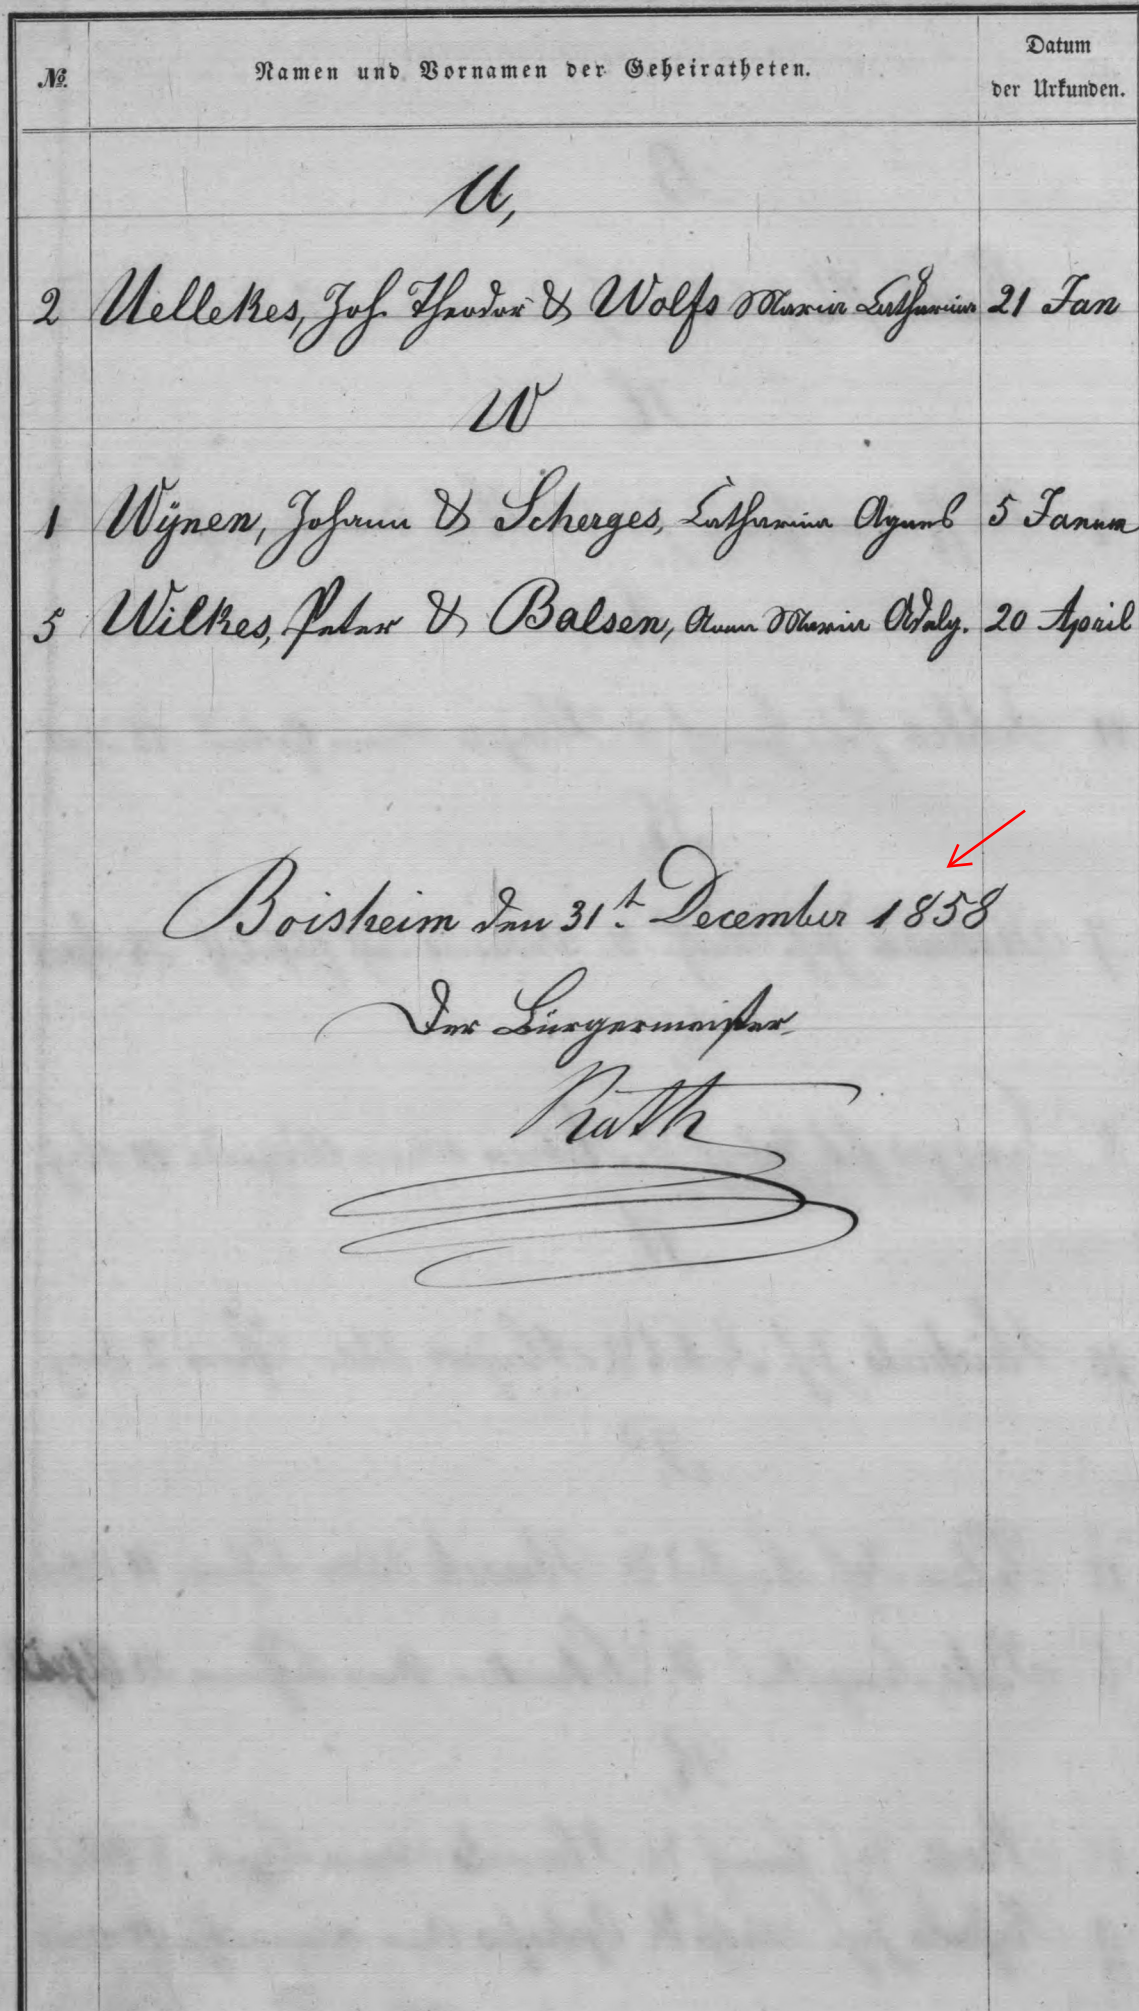 №.
Namen und Vornamen der Geheiratheten.
Datum
der Urkunden.
U,
2 Uellekes, Joh. Theodor & Wolfs Maria Catharina 21 Jan
W
1 Wÿnen, Johann & Scherges, Catharina Agnes 5 Januar
5 Wilkes, Peter & Balsen, Anna Maria Adelg. 20 April
Boisheim den 31t. December 1858
Der Bürgermeister
Rath